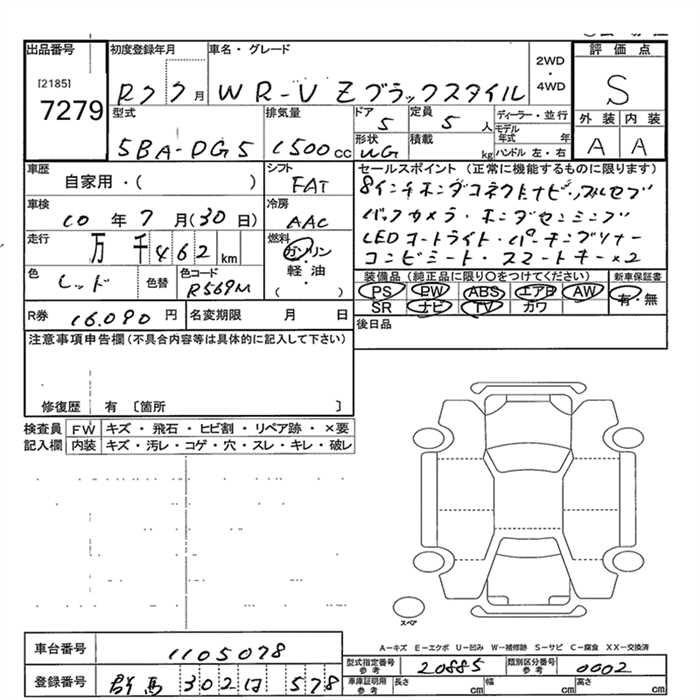 出品番号 初度登録年月 車名・グレード 2WD・4WD 評価点
[2185]
7279 R7 7月 WR-V Zブラックスタイル S
型式 排気量 ドア 定員 ディーラー・並行 外装 内装
5BA-DG5 1500cc 5 5人 モデル年式 年 A A
形状 WG 積載 kg ハンドル 左・右
車歴 シフト セールスポイント(正常に機能するものに限ります)
自家用・( ) FAT 8インチホンダコネクトナビ・フルセグ
車検 冷房 バックカメラ・ホンダセンシング
10年7月(30日) AAC LEDコートライト・パーキングソナー
走行 燃料 コンビシート・スマートキー×2
万千462km ガソリン 装備品(純正品に限り○をつけてください) 新車保証書
色 色替 色コード 軽・油 PS PW ABS エアB AW 有・無
レッド R569M ( ) SR ナビ TV カワ
R券 16,090円 名変期限 月 日 後日品
注意事項申告欄(不具合内容等は具体的に記入して下さい)
修復歴 有〔箇所 〕
検査員 FW キズ・飛石・ヒビ割・リペア跡・×要
記入欄 内装 キズ・汚レ・コゲ・穴・スレ・キレ・破レ
スペア
A−キズ E−エクボ U−凹み W−補修跡 S−サビ C−腐食 XX−交換済
車台番号 1105078
型式指定番号 参考 20885 類別区分番号 参考 0002
登録番号 群馬 302 は 578
車庫証明用 参考 長さ cm 幅 cm 高さ cm